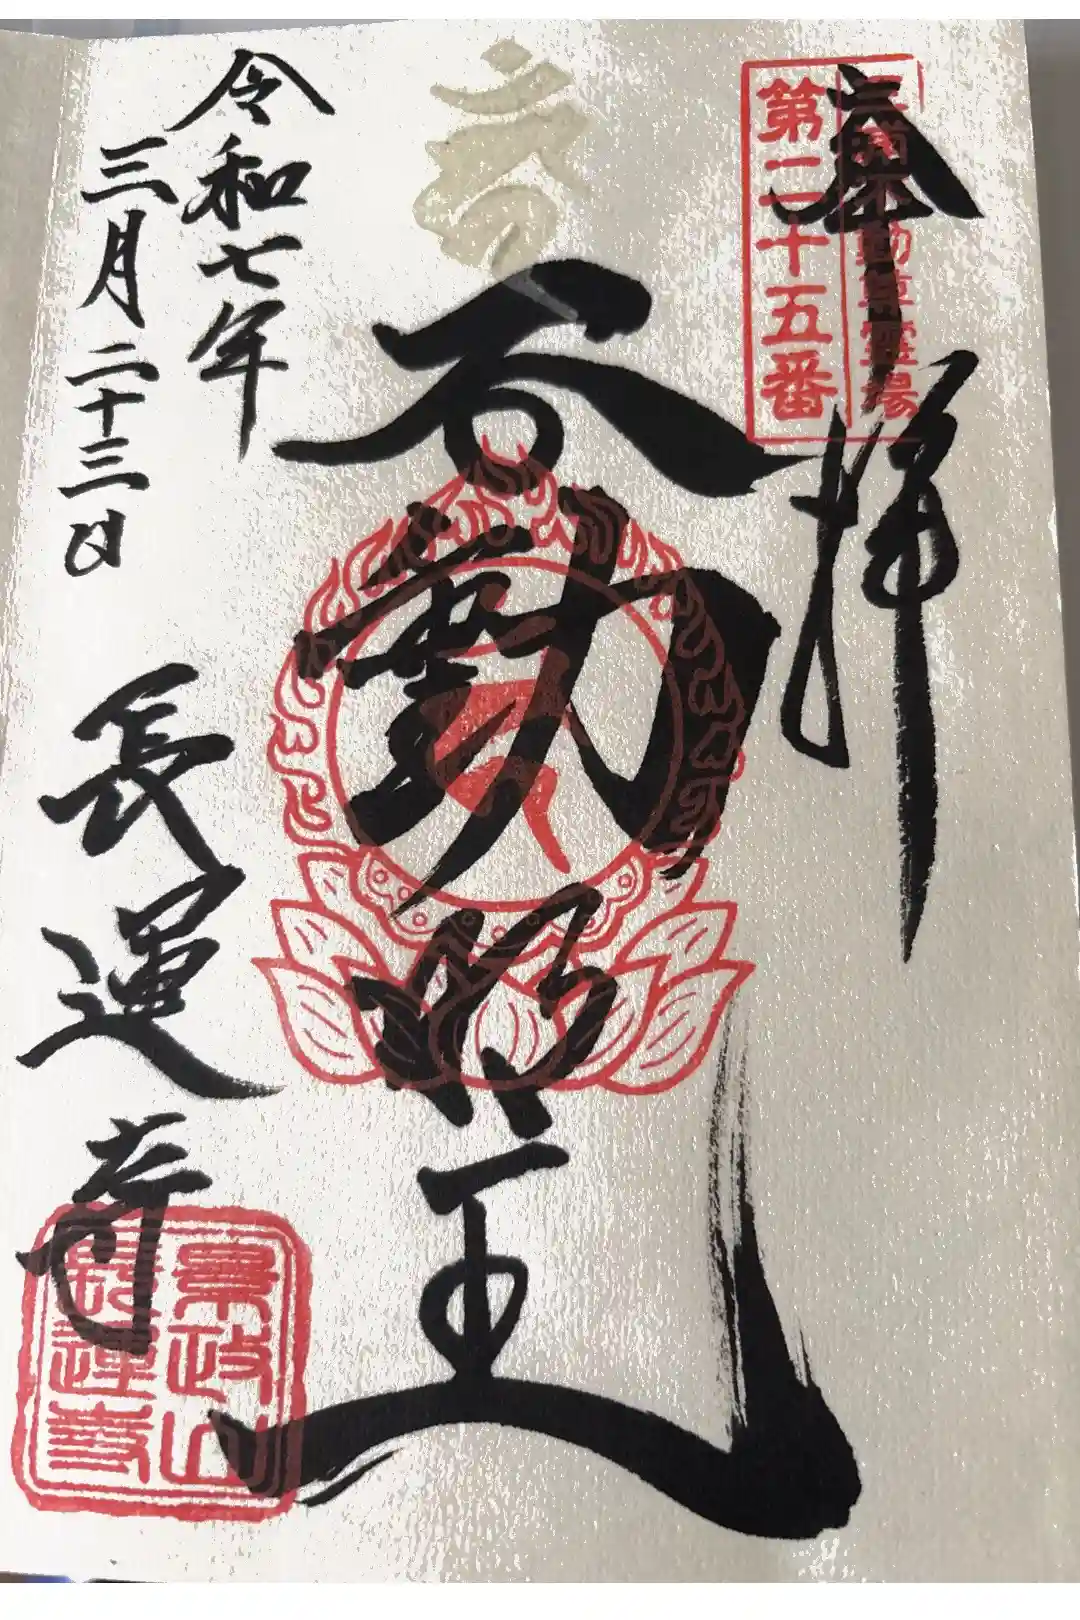 奉拝
三浦不動尊霊場
第二十五番
不動明王
令和七年
三月二十三日
長運寺
長運寺